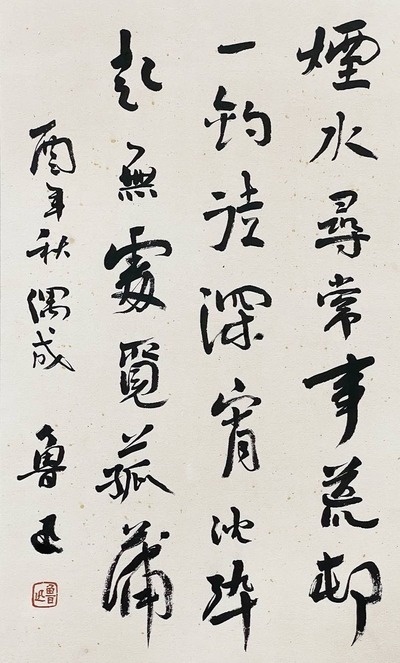 煙水尋常事荒邨
一釣徒深宵沈醉
起無處覓菰蒲
酉年秋偶成 魯迅
魯迅